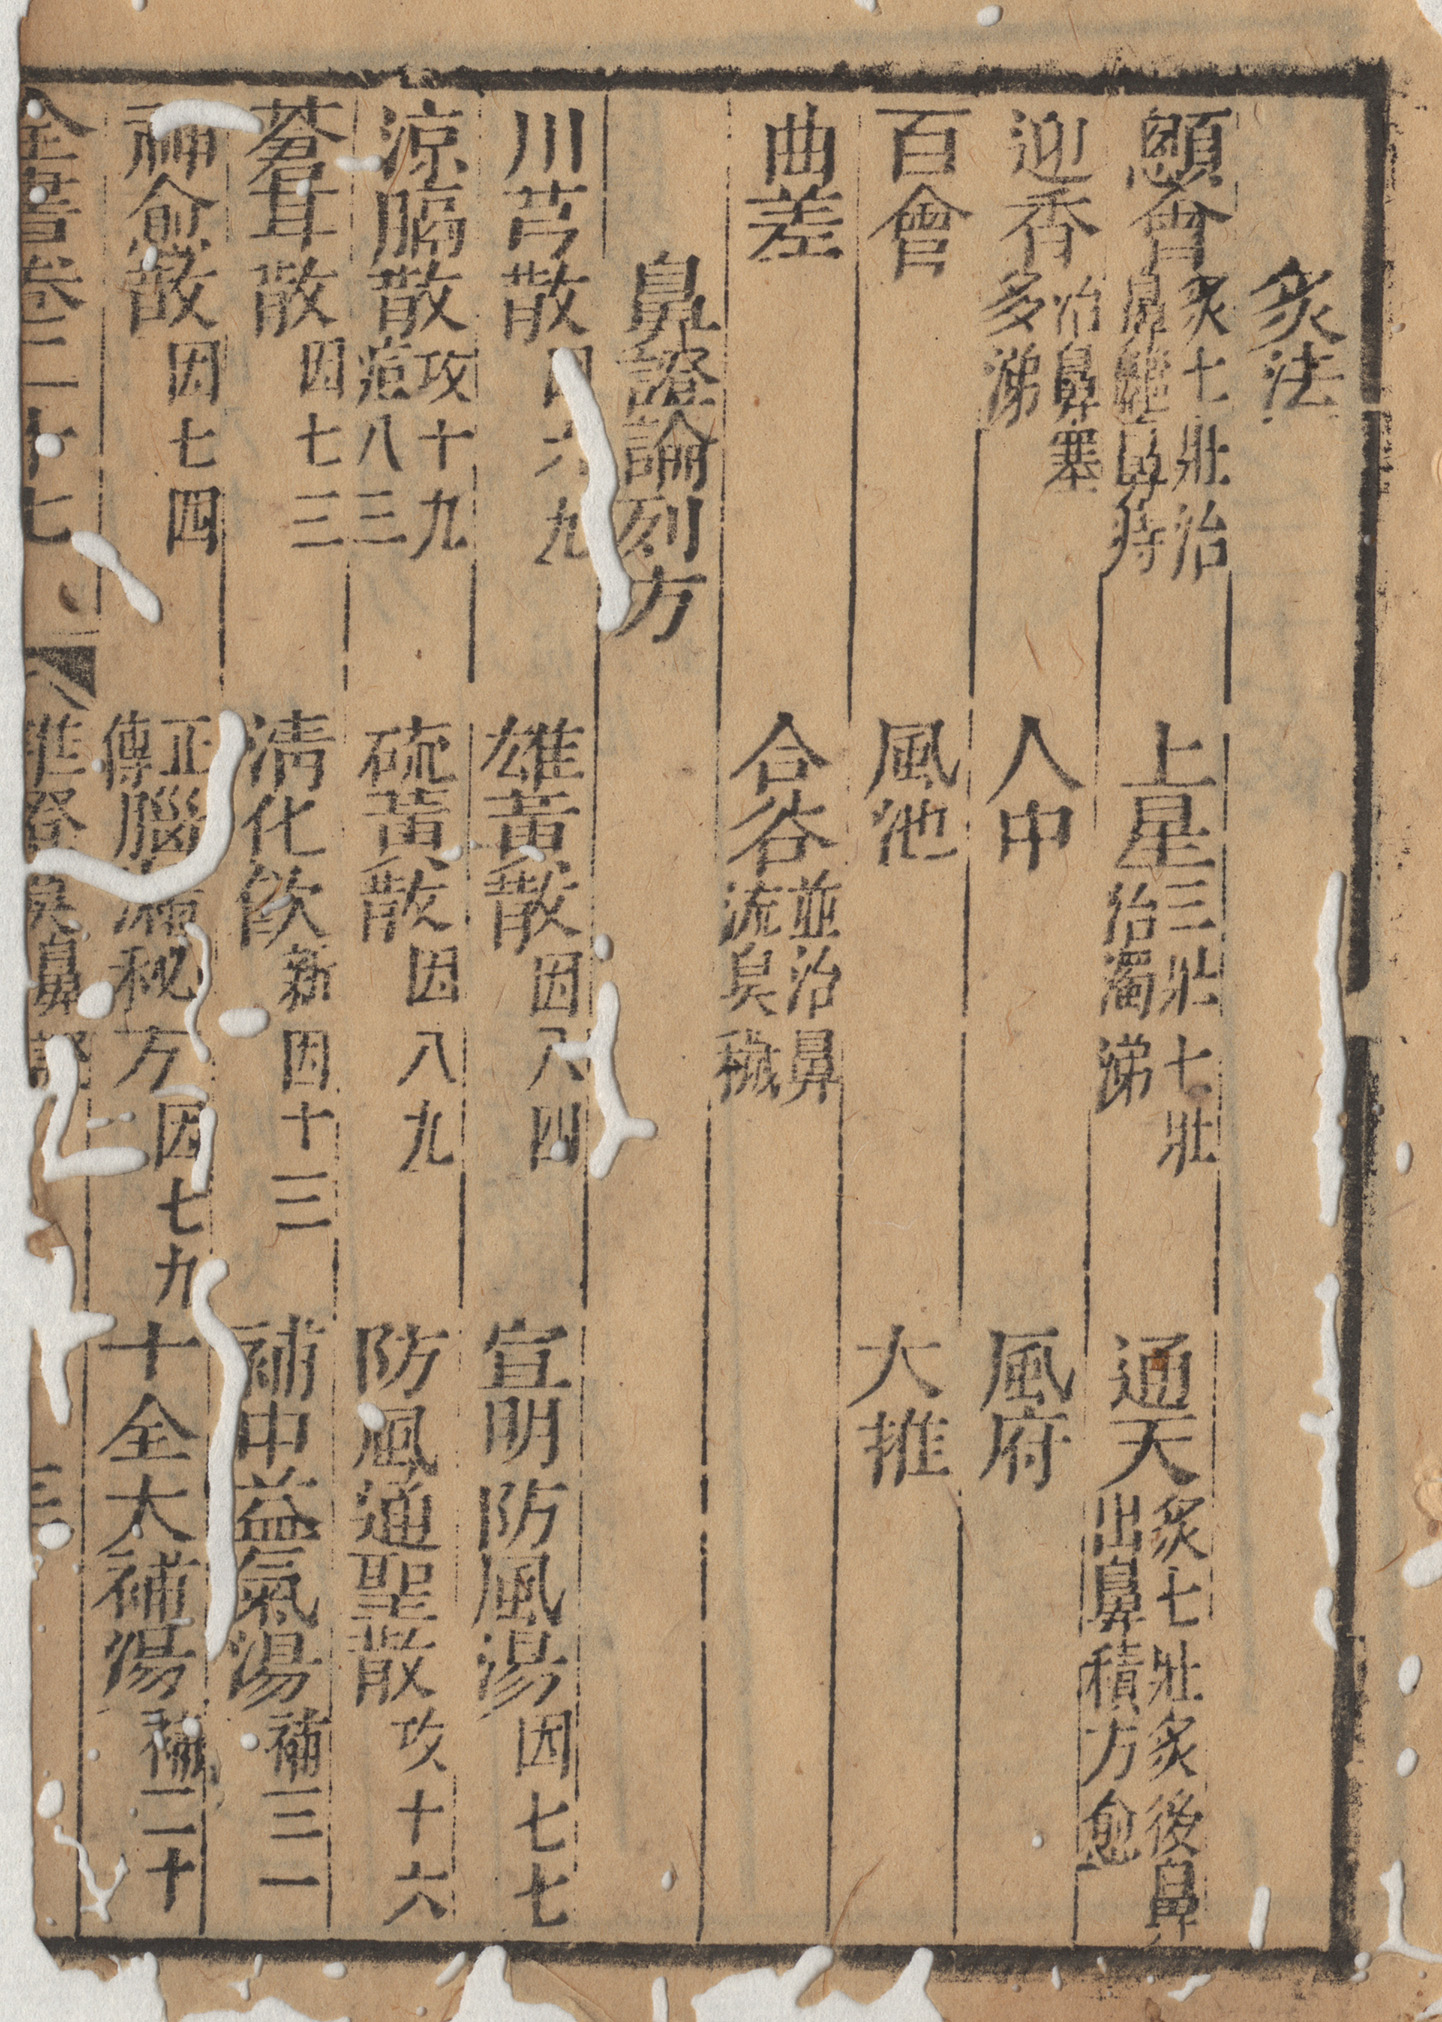 灸法
顖會灸七壯治鼻鼽鼻痔 上星三壯七壯治濁涕 通天灸七壯灸後鼻出鼻積方愈
迎香治鼻塞多涕 人中 風府
百會 風池 大推
曲差 合谷並治鼻流臭穢
鼻證論列方
川芎散因六九 雄黃散因八四 宣明防風湯因七七
涼膈散攻十九痘八三 硫黃散因八九 防風通聖散攻十六
蒼耳散因七三 清化飲新因十三 補中益氣湯補三一
神愈散因七四 正傳腦漏秘方因七九 十全大補湯補二十
全書卷二十七 雜證 鼻證